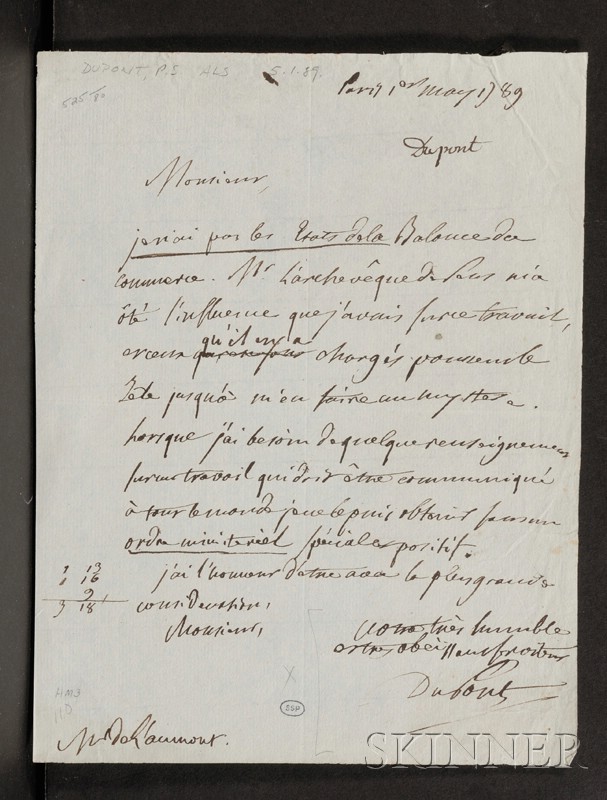 DUPONT, P.S ALS 5.1.89.
Paris 1er may 1789
Dupont
Monsieur,
je n'ai pas les Etats de la Balance du
commerce. Mr L'archevêque de Sens m'a
ôté l'influence que j'avais sur ce travail,
et ceux qu'il en a chargés poussent le
Zele jusqu'à m'en faire un mystere.
Lorsque j'ai besoin de quelque renseignement
sur un travail qui doit être communiqué
à tout le monde je ne le puis obtenir sans un
ordre ministeriel spécial et positif.
j'ai l'honneur d'etre avec la plus grande
consideration,
Monsieur,
votre très humble
et très obéissant serviteur
DuPont
1 13
1 16
9
3 18
HM3
X
DSP
Mr de Vaumont.
SKINNER